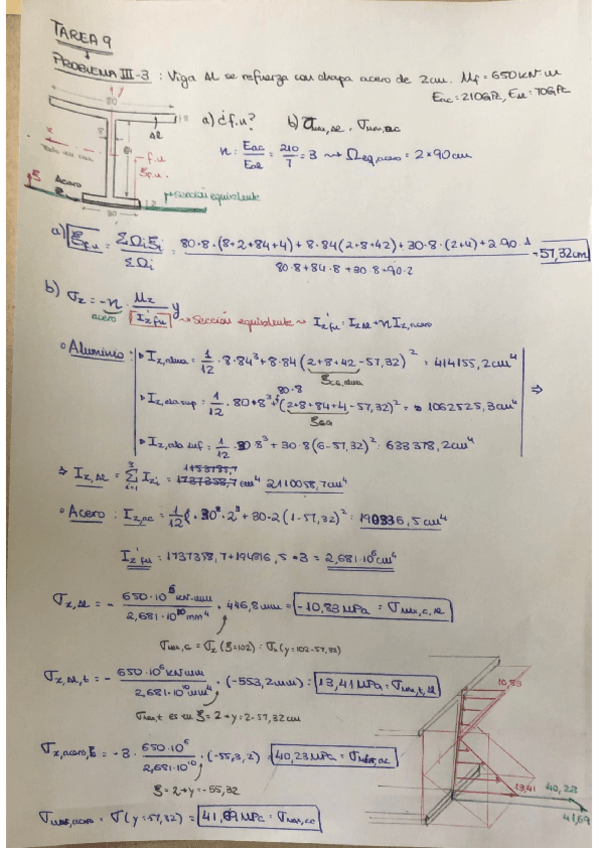 TAREA 9
PROBLEMA III-3 : Viga Al se refuerza con chapa acero de 2cm. Mf = 650 kN·m
Eac = 210GPa, Eal = 70GPa
80
8
8
84
Al
Acero
30
2
ξ
f.u
ξf.u.
sección equivalente
a) ¿f.u?
b) σmax,Al , σmax,ac
n = Eac/Eal = 210/7 = 3 ⇝ Ωeq,acero = 2×90cm
a) ξf.u = ΣΩi ξi / ΣΩi = 80·8·(8+2+84+4) + 8·84(2+8+42) + 30·8·(2+4) + 2·90·1 / 80·8+84·8+30·8+90·2 = 57,32cm
b) σz = -n · Mz / Iz'fu y
acero
sección equivalente ⇝ Iz'fu = Iz,Al + n Iz,acero
• Aluminio :
• Iz,alma = 1/12 · 8·84³ + 8·84 (2+8+42-57,32)² = 414155,2cm⁴
ξCG,alma
• Iz,ala sup = 1/12 · 80·8³ + 80·8 (2+8+84+4-57,32)² = 1062525,3cm⁴
ξCG
• Iz,ala inf = 1/12 · 30 8³ + 30·8 (6-57,32)² = 633378,2cm⁴
⇒
⇒ Iz,Al = Σ Izi = 1737358,7 cm⁴ 2110058,7cm⁴
• Acero : Iz,ac = 1/12 · 30·2³ + 30·2 (1-57,32)² = 190336,5cm⁴
Iz'fu = 1737358,7+194816,5·3 = 2,681·10⁶cm⁴
σz,Al = - 650·10⁶ kN·mm / 2,681·10¹⁰ mm⁴ · 446,8mm = -10,83MPa = σmax,c,Al
σmax,c = σz (ξ=102) = σz (y=102-57,32)
σz,Al,t = - 650·10⁶ kN mm / 2,681·10¹⁰ mm⁴ · (-553,2mm) = 13,41MPa = σmax,t,Al
σmax,t es en ξ=2 → y=2-57,32cm
σz,acero,t = -3 · 650·10⁶ / 2,681·10¹⁰ · (-55,3,2) = 40,23MPa = σmin,ac
ξ=2 → y=-55,32
σmax,acero = σ(y=57,32) = 41,69MPa = σmax,ac
10,83
13,41
40,23
41,69